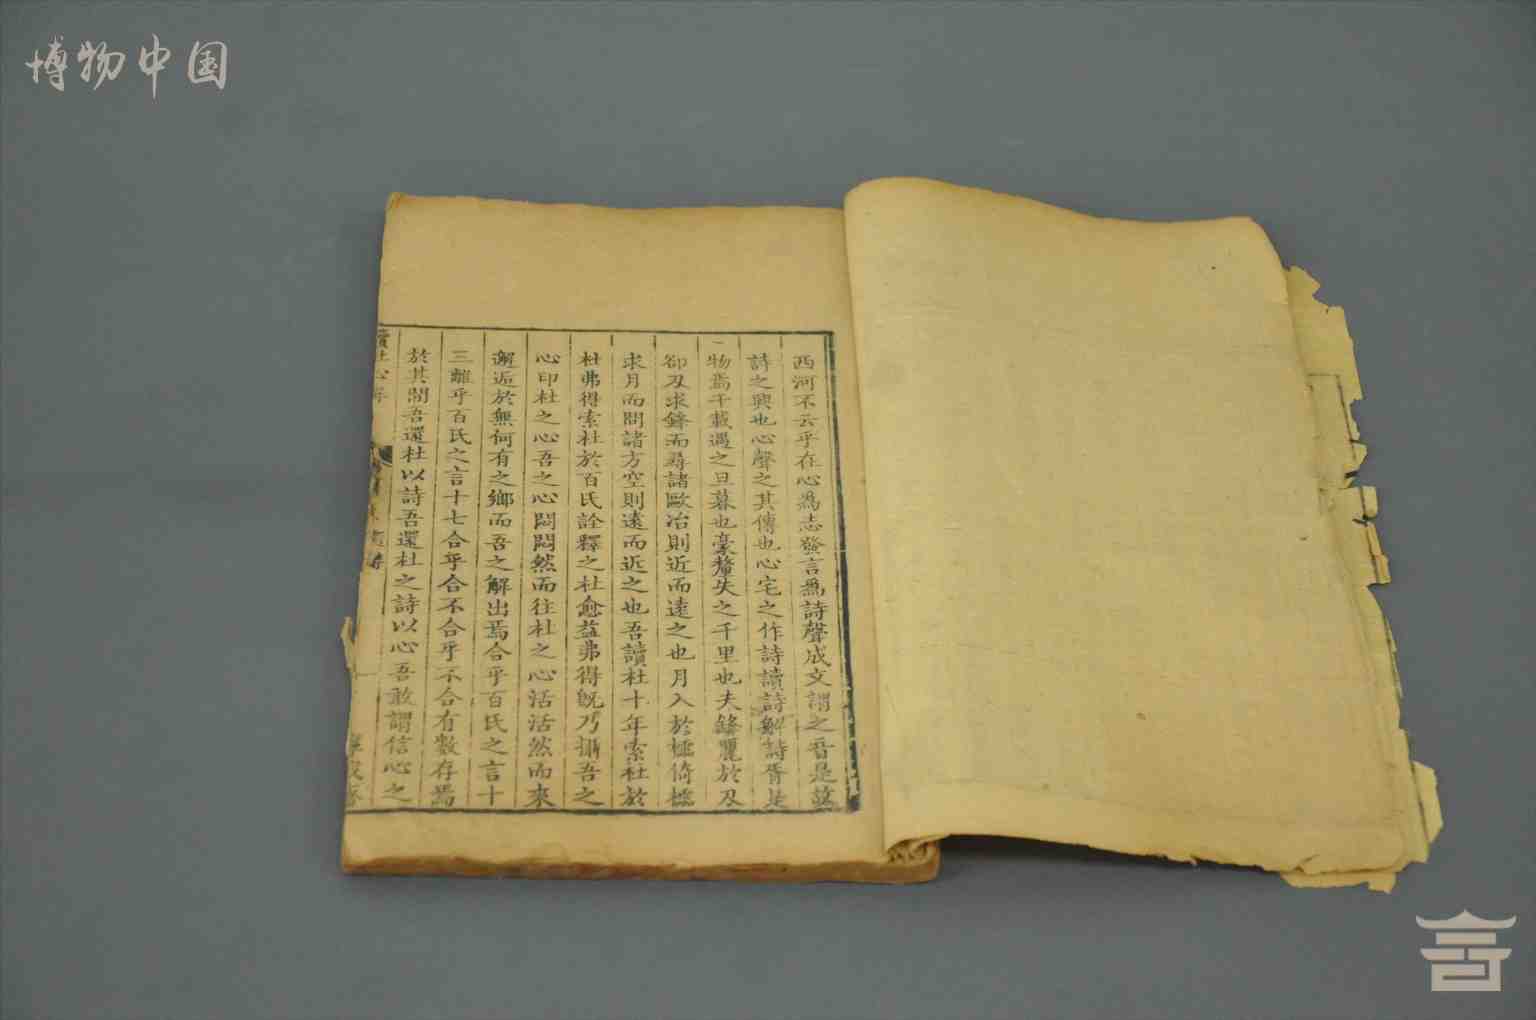 博物中国
西河不云乎在心為志發言為詩聲成文謂之音是故
詩之興也心聲之其傳也心宅之作詩讀詩解詩胥是
物焉千載遇之旦暮也毫釐失之千里也夫鋒麗於刃
卻刃求鋒而尋諸歐冶則近而遠之也月入於櫺倚櫺
求月而問諸方空則遠而近之也吾讀杜十年索杜於
杜弗得索杜於百氏詮釋之杜愈益弗得旣乃攝吾之
心印杜之心吾之心悶悶然而往杜之心活活然而來
邂逅於無何有之鄉而吾之解出焉合乎百氏之言十
三離乎百氏之言十七合乎合不合乎不合有數存焉
於其間吾還杜以詩吾還杜之詩以心吾敢謂信心之
讀杜心解